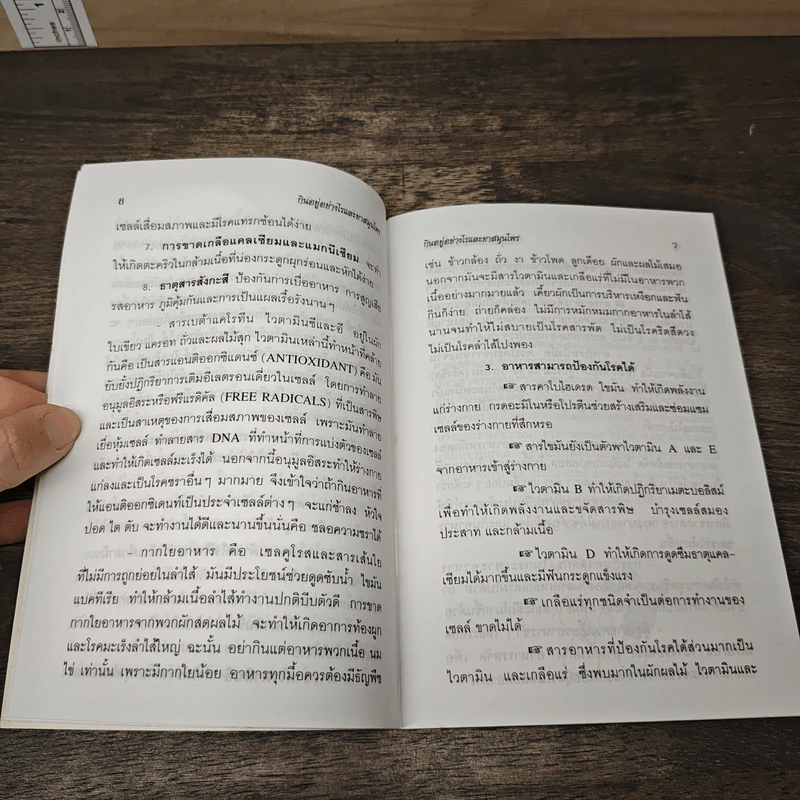 6
กินอยู่อย่างไรและยาสมุนไพร
เซลล์เสื่อมสภาพและมีโรคแทรกซ้อนได้ง่าย
7. การขาดเกลือแคลเซียมและแมกนีเซียม จะทำ
ให้เกิดตะคริวในกล้ามเนื้อที่น่องกระดูกผุกร่อนและหักได้ง่าย
8. ธาตุสารสังกะสี ป้องกันการเบื่ออาหาร การสูญเสีย
รสอาหาร ภูมิคุ้มกันและการเป็นแผลเรื้อรังนาน ๆ
- สารเบต้าแคโรทีน ไวตามินซีและอี อยู่ในผัก
ใบเขียว แครอท ถั่วและผลไม้สุก ไวตามินเหล่านี้ทำหน้าที่คล้าย
กันคือ เป็นสารแอนติออกซิแดนซ์ (ANTIOXIDANT) คือ มัน
ยับยั้งปฏิกิริยาการเติมอีเลตรอนเดี่ยวในเซลล์ โดยการทำลาย
อนุมูลอิสระหรือฟรีแรดิคัล (FREE RADICALS) ที่เป็นสารพิษ
และเป็นสาเหตุของการเสื่อมสภาพของเซลล์ เพราะมันทำลาย
เยื่อหุ้มเซลล์ ทำลายสาร DNA ที่ทำหน้าที่การแบ่งตัวของเซลล์
และทำให้เกิดเซลล์มะเร็งได้ นอกจากนี้อนุมูลอิสระทำให้ร่างกาย
แก่ลงและเป็นโรคชราอื่น ๆ มากมาย จึงเข้าใจว่าถ้ากินอาหารที่
ให้แอนติออกซิเดนท์เป็นประจำเซลล์ต่าง ๆ จะแก่ช้าลง หัวใจ
ปอด ไต ตับ จะทำงานได้ดีและนานขึ้นนั่นคือ ชลอความชราได้
- กากใยอาหาร คือ เซลคูโรสและสารเส้นใย
ที่ไม่มีการถูกย่อยในลำไส้ มันมีประโยชน์ช่วยดูดซับน้ำ ไขมัน
แบคทีเรีย ทำให้กล้ามเนื้อลำไส้ทำงานปกติบีบตัวดี การขาด
กากใยอาหารจากพวกผักสดผลไม้ จะทำให้เกิดอาการท้องผูก
และโรคมะเร็งลำไส้ใหญ่ ฉะนั้น อย่ากินแต่อาหารพวกเนื้อ นม
ไข่ เท่านั้น เพราะมีกากใยน้อย อาหารทุกมื้อควรต้องมีธัญพืช
กินอยู่อย่างไรและยาสมุนไพร
7
เช่น ข้าวกล้อง ถั่ว งา ข้าวโพด ลูกเดือย ผักและผลไม้เสมอ
นอกจากมันจะมีสารไวตามินและเกลือแร่ที่ไม่มีในอาหารพวก
เนื้ออย่างมากมายแล้ว เคี้ยวผักเป็นการบริหารเหงือกและฟัน
กินก็ง่าย ถ่ายก็คล่อง ไม่มีการหมักหมมกากอาหารในลำไส้
นานจนทำให้ไม่สบายเป็นโรคสารพัด ไม่เป็นโรคริดสีดวง
ไม่เป็นโรคลำไส้โป่งพอง
3. อาหารสามารถป้องกันโรคได้
สารคาโบไฮเดรต ไขมัน ทำให้เกิดพลังงาน
แก่ร่างกาย กรดอะมิโนหรือโปรตีนช่วยสร้างเสริมและซ่อมแซม
เซลล์ของร่างกายที่สึกหรอ
สารไขมันยังเป็นตัวพาไวตามิน A และ E
จากอาหารเข้าสู่ร่างกาย
ไวตามิน B ทำให้เกิดปฏิกิริยาเมตะบอลิสม์
เพื่อทำให้เกิดพลังงานและขจัดสารพิษ บำรุงเซลล์สมอง
ประสาท และกล้ามเนื้อ
ไวตามิน D ทำให้เกิดการดูดซึมธาตุแคล-
เซียมได้มากขึ้นและมีฟันกระดูกแข็งแรง
เกลือแร่ทุกชนิดจำเป็นต่อการทำงานของ
เซลล์ ขาดไม่ได้
สารอาหารที่ป้องกันโรคได้ส่วนมากเป็น
ไวตามิน และเกลือแร่ ซึ่งพบมากในผักผลไม้ ไวตามินและ
1
2
inches